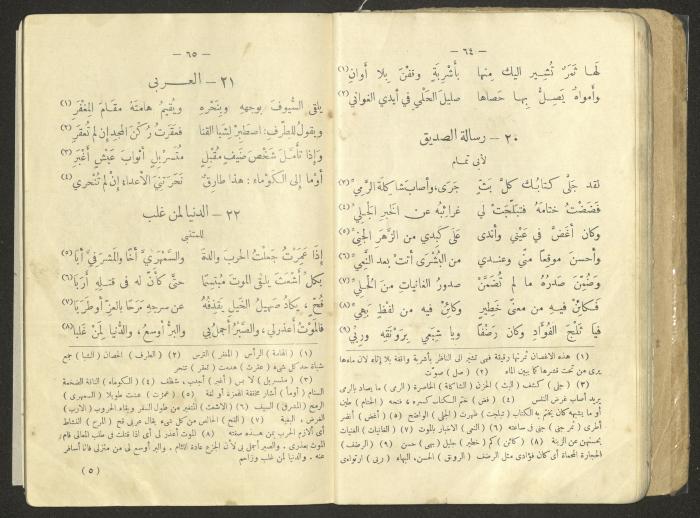 — ٦٤ —
لَها ثَمَرٌ تُشير اليك منها بأشْرِبَةٍ وقفْنَ بِلا أوانِ (١)
وأمواهٌ يَصِلُّ بها حَصاها صليلَ الحَلْيِ في أيدي الغواني (٢)
٢٠ – رسالة الصديق
لأبي تمام
لقد جَلَّى كتابُك كلَّ بَثٍّ جَوٍ، وأصابَ شاكلةَ الرَّمِيِّ (٣)
فَضَضْتُ ختامَهُ فتبلَّجَتْ لي غرائبُه عن الخبرِ الجَلِيِّ (٤)
وكان أغَضَّ في عَيْني وأندَى عَلَى كَبِدِي من الزَّهَرِ الجَنِيِّ (٥)
وأحسنَ موقعًا منّي وعندي من البُشْرَى أتتْ بعد النَّعِيِّ (٦)
وضُمِّنَ صَدرُهُ ما لم تُضَمَّنْ صدورُ الغانياتِ منَ الحُلِيِّ (٧)
فكائِنْ فيه من معنًى خطيرٍ وكائِنْ فيه من لفظٍ بَهِيِّ (٨)
فيا ثَلْجَ الفُؤادِ وكان رَضْفًا ويا شِبَعِي بِرَوْنَقِهِ ورِيِّي (٩)
(١) هذه الاغصان ثمرتها رقيقة فهي تشير الى الناظر بأشربة واقفة بلا إناء لان ماءها
يرى من تحت قشرها كما يبين الماء (٢) صل : صوّت
(٣) (جلى) كشف (البث) الحزن (الشاكلة) الخاصرة (الرمي) ما يصاد بالرمي
يريد أصاب غرض النفس (٤) (فض) ختم الكتاب كسره ، فتحه (الختام) طين
أو ما يشبهه كان يختم به الكتاب (تبلجت) ظهرت (الجلي) الواضح (٥) (أغض) أنضر
(أطرى) ثمر جني : جني من ساعته (٦) النعي) الاخبار بالموت (٧) (الغانيات) الغنيات
بحسنهن عن الزينة (٨) (كائن) كم (خطير) جليل (بهي) حسن (٩) (الرضف)
الحجارة المحماة أي كان فؤادي مثل الرضف (الرونق) الحسن. البهاء (ربي) ارتوائي
— ٦٥ —
٢١ – العربي
يلقى السُّيوفَ بوجههِ وبنَحْرِهِ ويُقيمُ هامتَهُ مقامَ المِغْفَرِ (١)
ويقولُ للطِّرفِ: اصطَبِرْ لِشَبا القَنا فعَقَرْتُ رُكْنَ المجدِ إن لم تُعقَرِ (٢)
وإذا تأمّلَ شَخْصَ ضَيفٍ مُقْبِلٍ مُتَسَرْبِلٍ أثوابَ عَيْشٍ أغْبَرِ (٣)
أوْما إلى الكَوْماءِ : هذا طارقٌ نَحَرَتْنِيَ الأعداءُ إنْ لم تُنْحَري (٤)
٢٢ – الدنيا لمن غلب
للمتنبي
إذا عَمِرْتُ جَعَلْتُ الحربَ والدةً والسَّمهَرِيَّ أخًا والمَشرَفيَّ أبا (٥)
بكلّ أشْعَثَ يلقى الموتَ مُبْتَسِمًا حتى كأنّ له في قتلِهِ أرَبا (٦)
قُحٍّ ، يكادُ صَهيلُ الخَيْلِ يَقْذِفُهُ عن سرجِهِ مَرَحًا بالعِزِّ أوْ طَرَبا (٧)
فالموتُ أعذَرُ لي ، والصَّبْرُ أجملُ بي والبرُّ أوسَعُ ، والدُّنيا لِمَنْ غَلَبا (٨)
(١) (الهامة) الرأس (المغفر) الترس (٢) (الطرف) الحصان (الشبا) جمع
شباة حد كل شيء (عقرت) هدمت (تعقر) تنحر
(٣) (متسربل) لا بس (أغبر) أجدب، شظف (٤) (الكوماء) الناقة الضخمة
السنام (أومأ) أشار مخففة الهمزة أو لغة (٥) (عمرت) عشت طويلا (السمهري)
الرمح (المشرفي) السيف (٦) (الاشعث) المتغير من طول السفر ولقاء الحروب (الارب)
الغرض . البغية (٧) (القح) الخالص من كل شيء يقال عربي قح (المرح) النشاط
أي ألازم الحرب بمن هذه صفته (٨) الموت أعذر لي أي اذا قتلت في طلب المعالي قام
الموت بعذري ، والصبر أجمل لي لأن الجزع عادة اللئام . والبر أوسع لي من منزلي فأنا أسافر
عنه . والدنيا لمن غلب وزاحم
(٥)